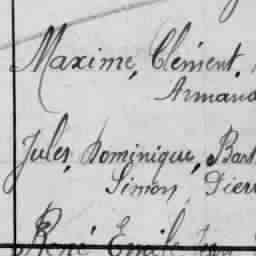 Maxime, Clément.
Armand
Jules, Dominique, Bart
Simon, Pierr
René Emile